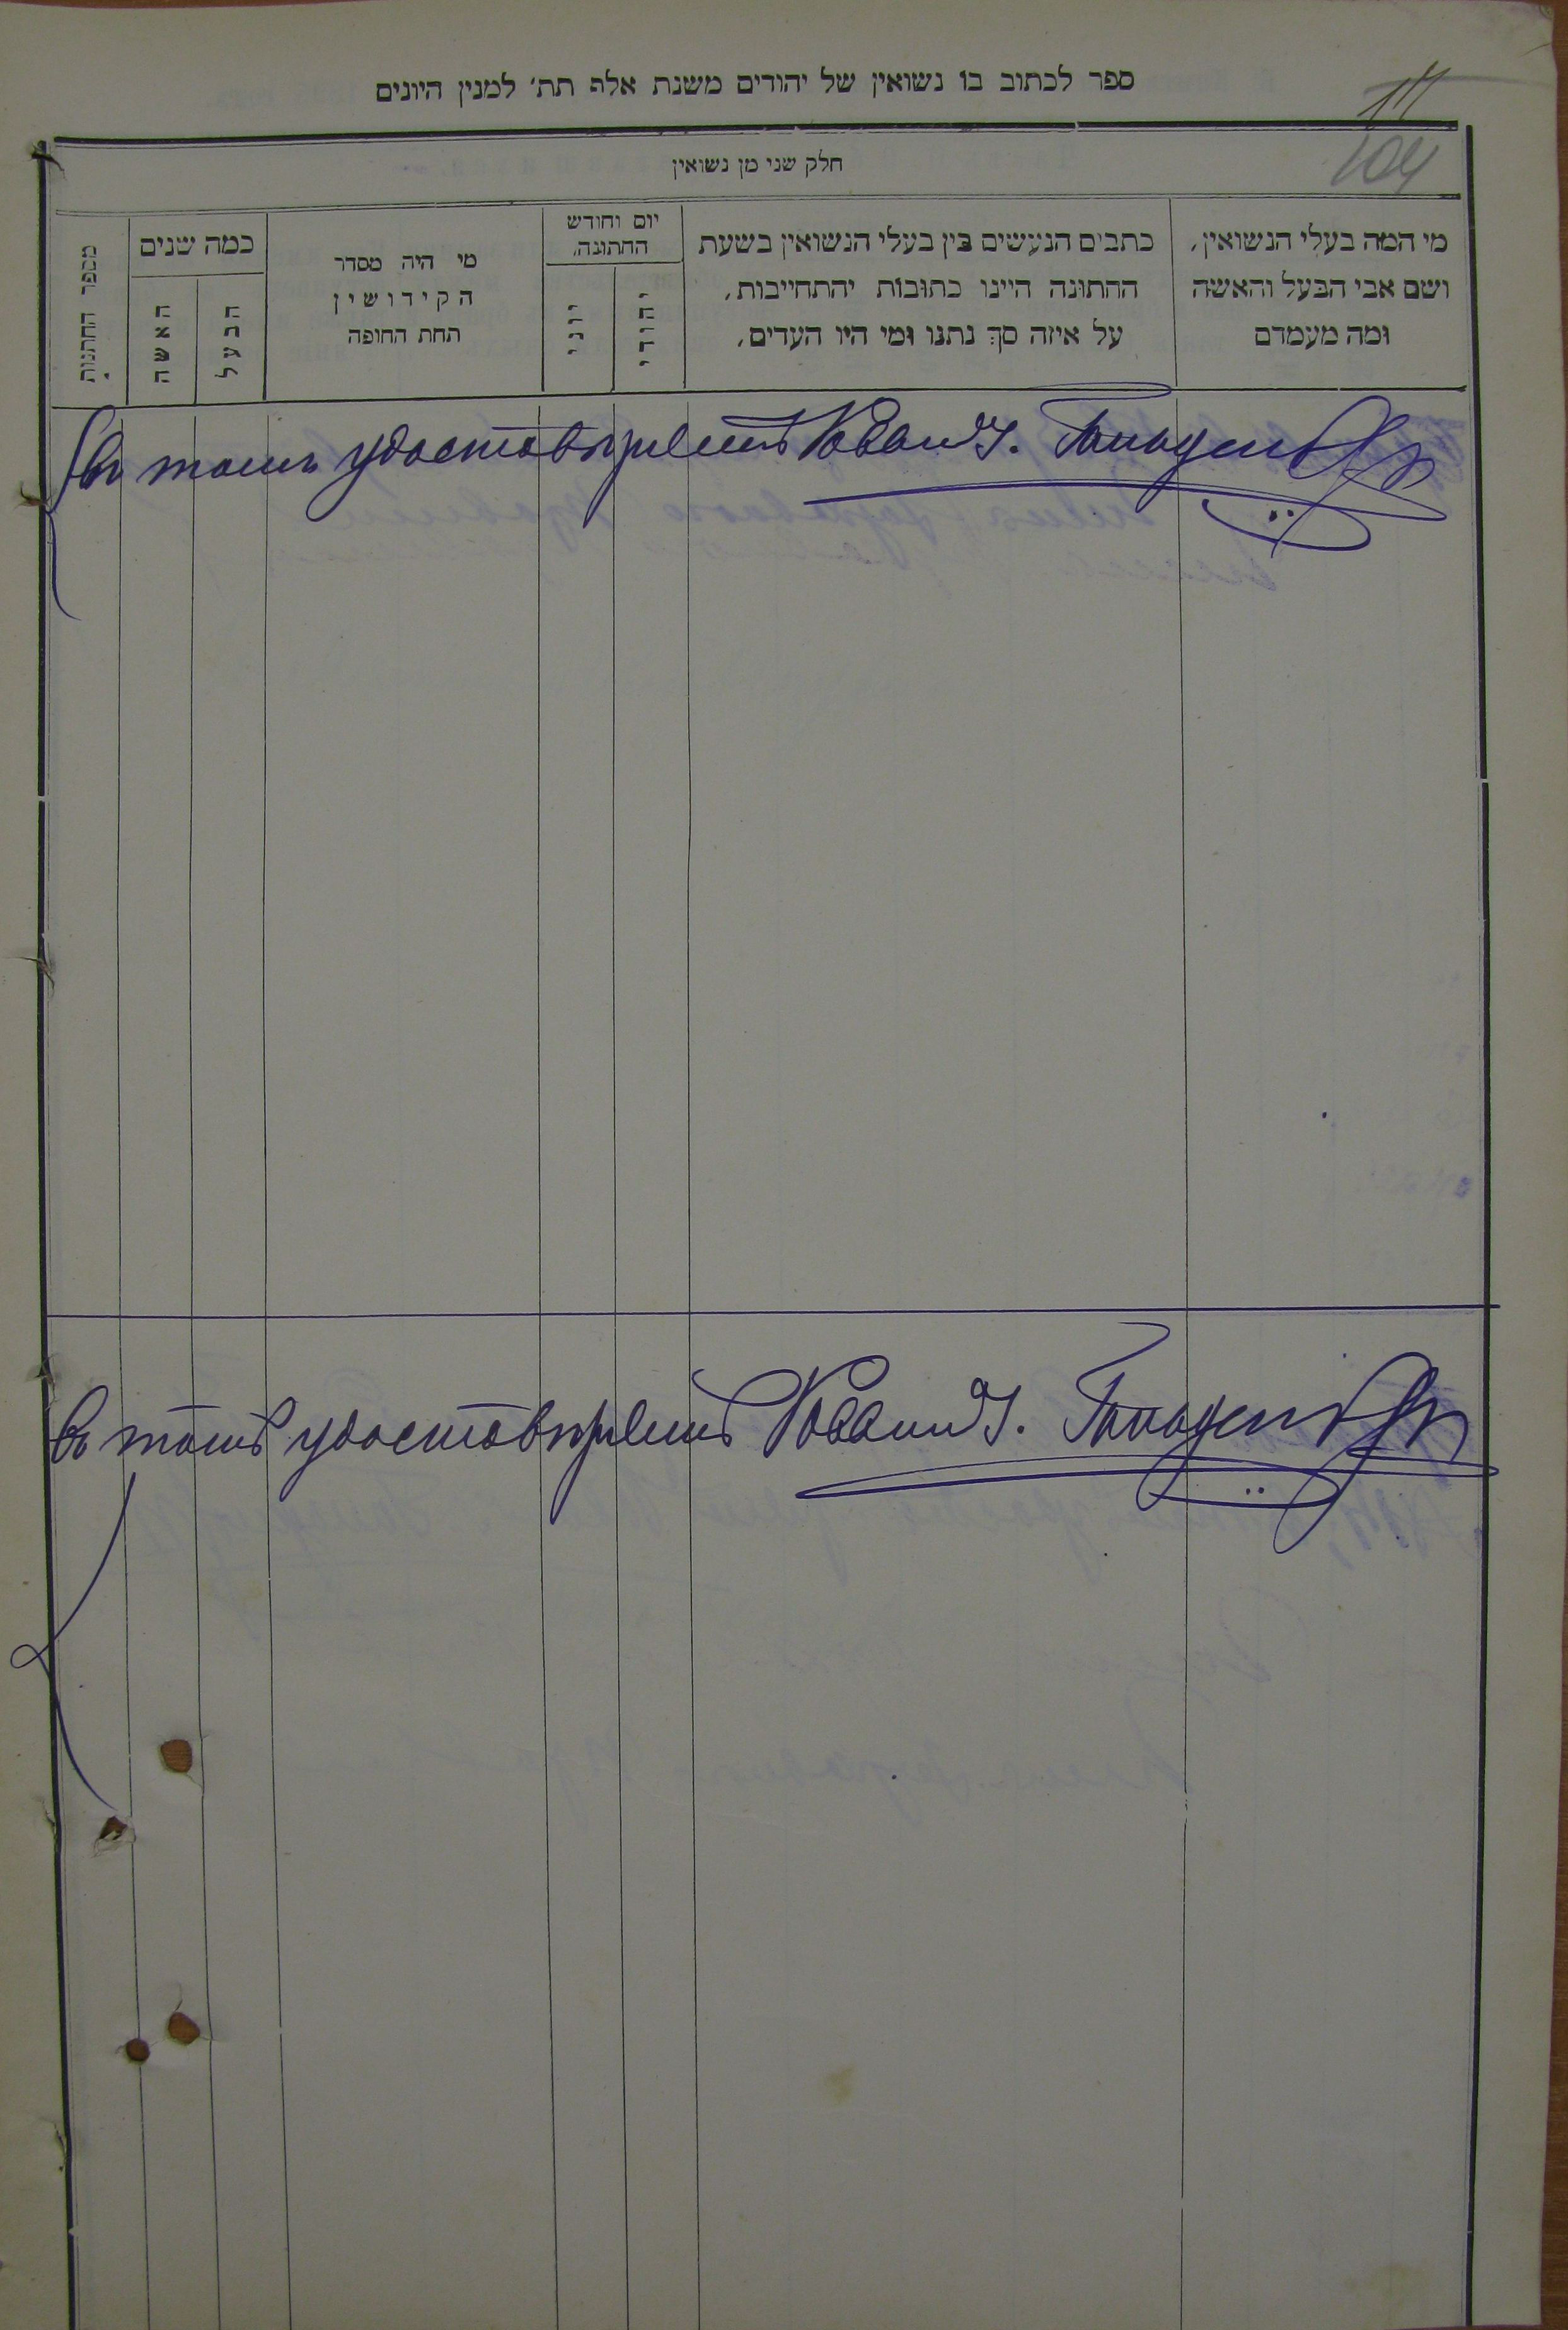 ספר לכתוב בו נשואין של יהודים משנת אלף תת׳ למנין היונים
104
חלק שני מן נשואין
מי המה בעלי הנשואין,
ושם אבי הבעל והאשה
ומה מעמדם
כתבים הנעשים בין בעלי הנשואין בשעת
החתונה היינו כתובות יהתחייבות,
על איזה סך נתנו ומי היו העדים,
יום וחודש
החתונה,
יהודי
יוני
מי היה מסדר
הקידושין
תחת החופה
כמה שנים
הבעל
האשה
מספר החתנות
въ томъ удостовѣряетъ Раввинъ
въ томъ удостовѣряетъ Раввинъ